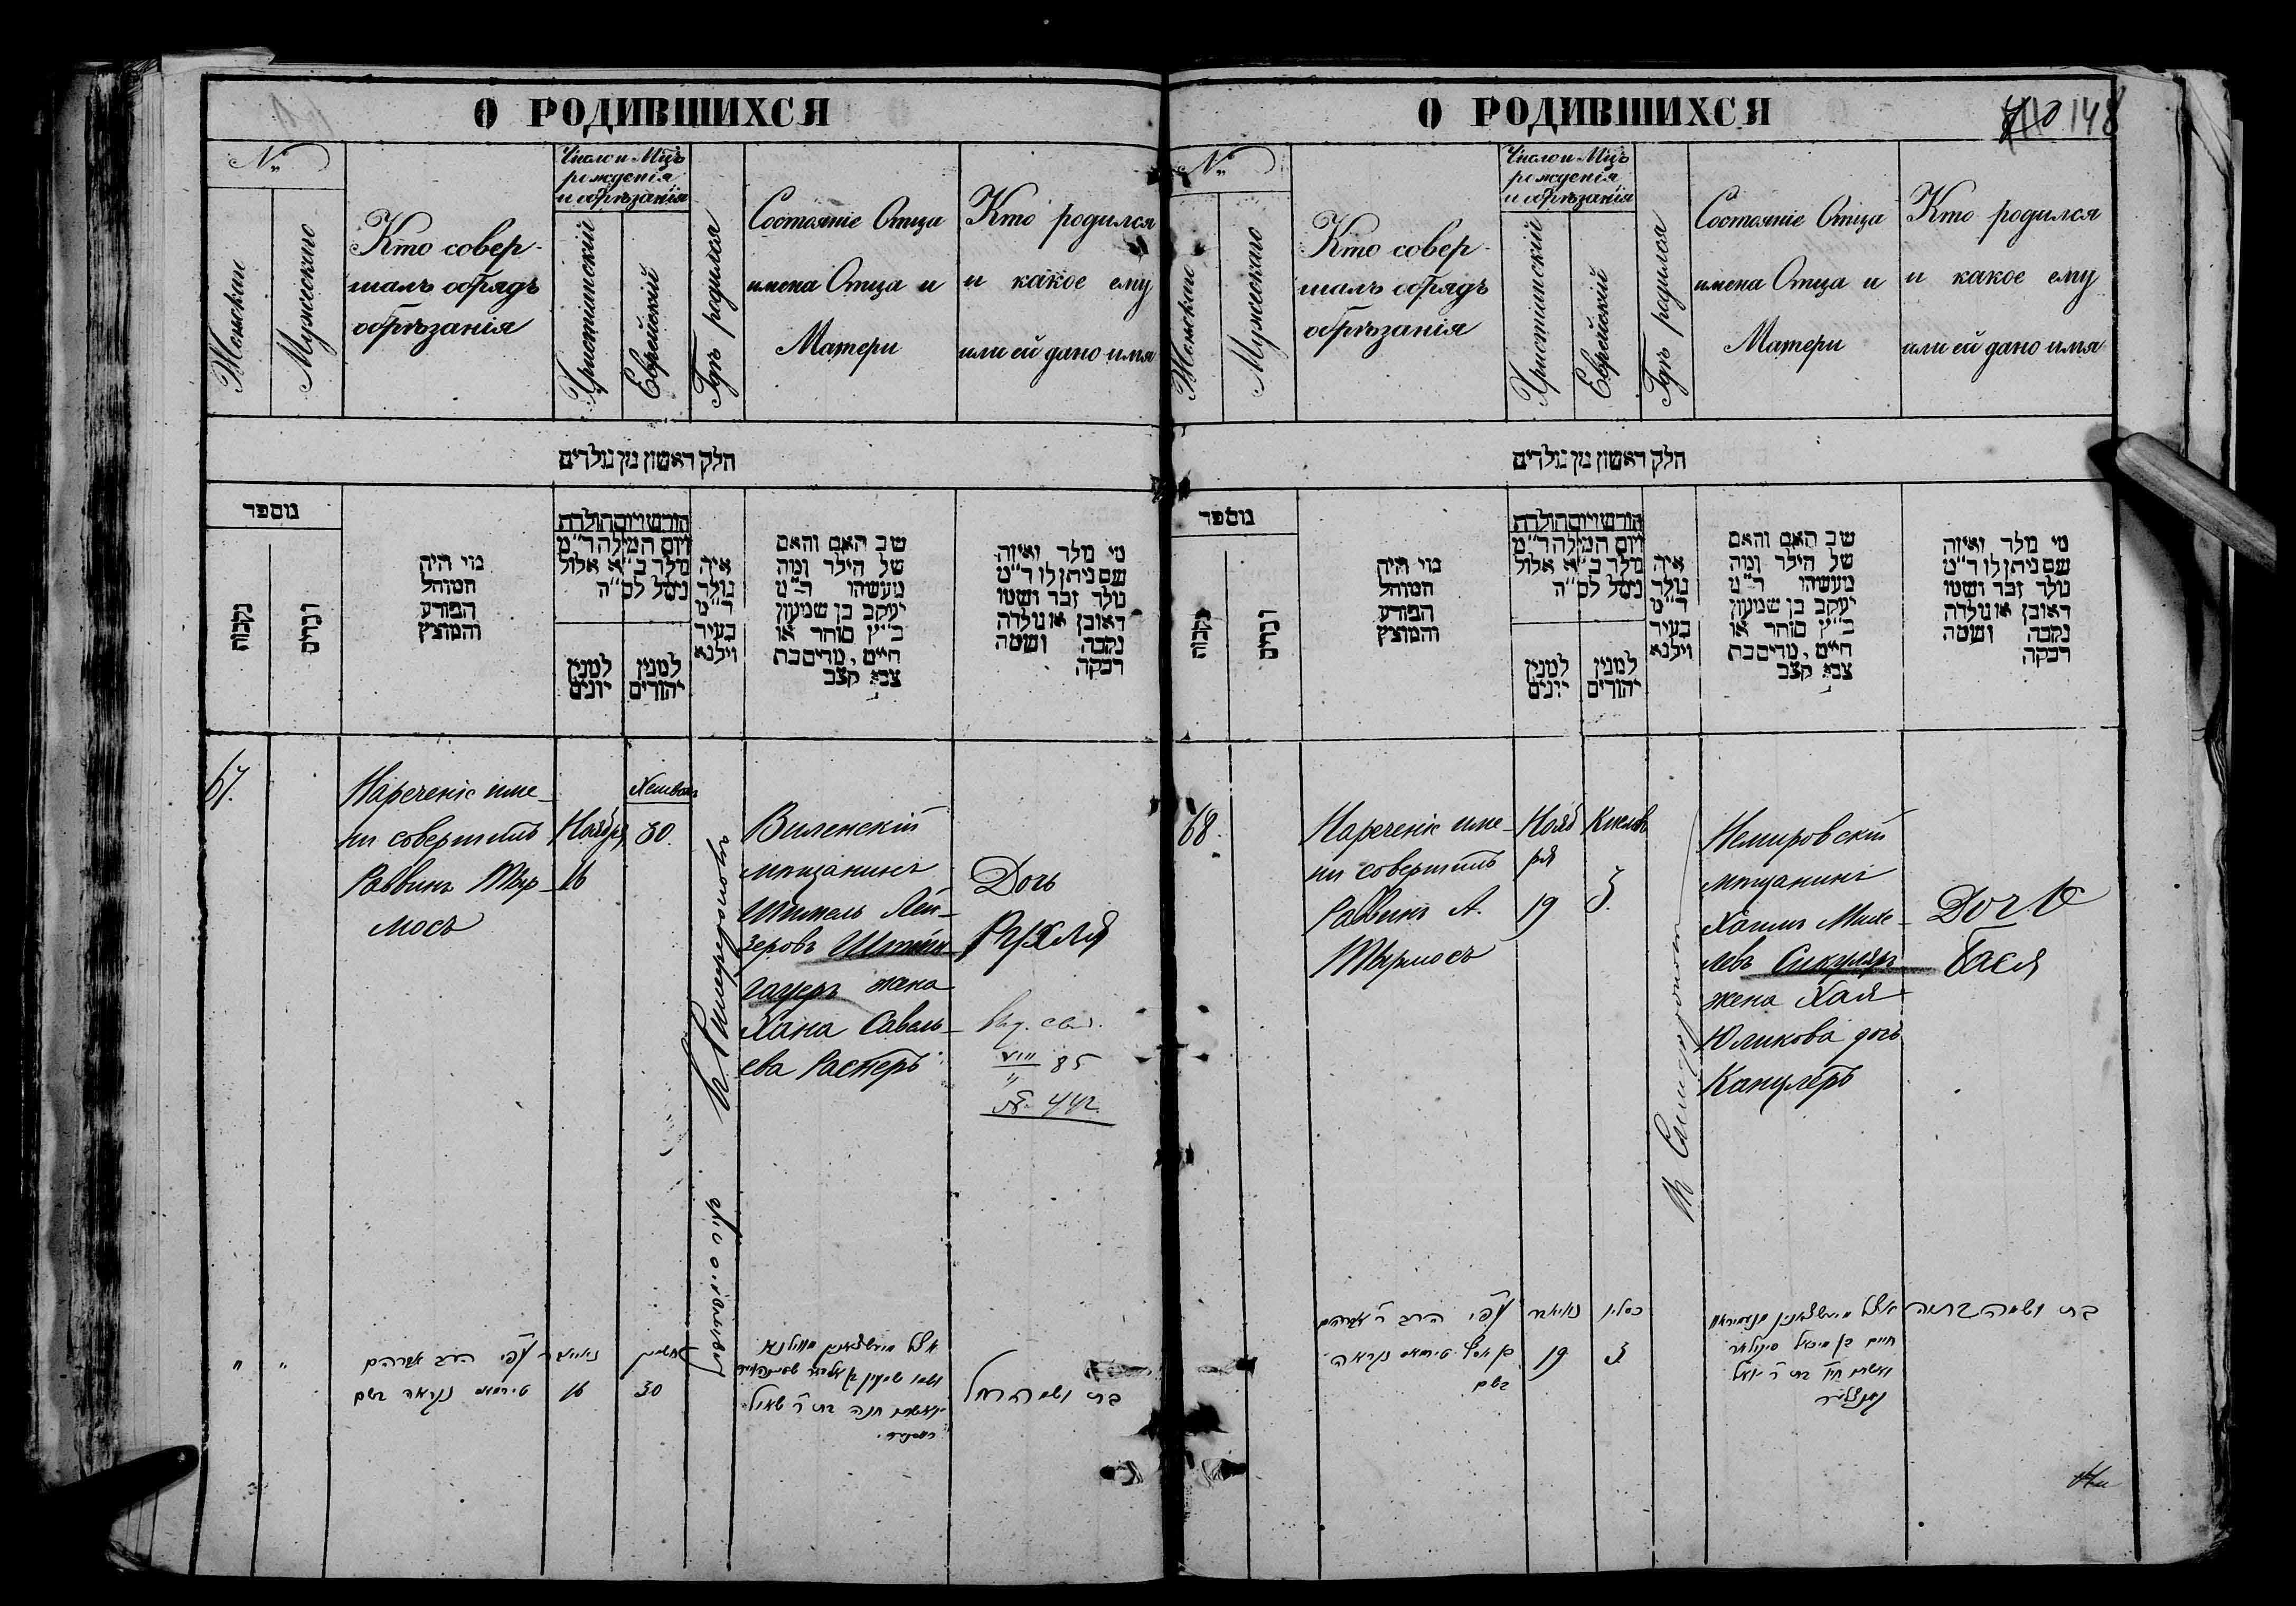 О РОДИВШИХСЯ
№
Женскаго
Мужескаго
Кто совер-
шалъ обрядъ
обрѣзанія
Число и Мѣць
рожденія
и обрѣзанія
Христіанскій
Еврейскій
Гдѣ родился
Состояніе Отца
имена Отца и
Матери
Кто родился
и какое ему
или ей дано имя
חלק ראשון מן נולדים
מספר
נקבות
זכרים
מי היה
המוהל
הפורע
והמוצץ
ויום המילה ר"מ
נולד כ"א אלול
נימל לס"ה
למנין
יונים
למנין
יהודים
איה
נולד
ר"מ
בעיר
וילנא
שב האם והאם
של הילד ומה
מעשיהו ר"מ
יעקב בן שמעון
כ"ץ סוחר או
חיים, מרים בת
צבי קצב
מי נולד ואיזה
שם ניתן לו ר"מ
נולד זכר ושמו
ראובן או נולדה
נקבה ושמה
רבקה
67.
Нареченіе име-
ни совершилъ
Раввинъ Тыр-
мосъ
Ноября
16
Хешвана
30.
Виленскій
мѣщанинъ
Шимель Лей-
зеровъ Штейн-
гауеръ жена
Хана Саваль-
ева Растеръ
Дочь
Рухля
VIII 85
№ 442.
ע"פי הרב אברהם
טירמאס נקראה בשם
נאיאבר
16
חשון
30
אצל מעשצאנין מווילנא
ואשתו חנה בת ר' שאול
בת ושמה רחל
О РОДИВШИХСЯ
148
№
Женскаго
Мужескаго
Кто совер-
шалъ обрядъ
обрѣзанія
Число и Мѣць
рожденія
и обрѣзанія
Христіанскій
Еврейскій
Гдѣ родился
Состояніе Отца
имена Отца и
Матери
Кто родился
и какое ему
или ей дано имя
חלק ראשון מן נולדים
מספר
נקבות
זכרים
מי היה
המוהל
הפורע
והמוצץ
ויום המילה ר"מ
נולד כ"א אלול
נימל לס"ה
למנין
יונים
למנין
יהודים
איה
נולד
ר"מ
בעיר
וילנא
שב האם והאם
של הילד ומה
מעשיהו ר"מ
יעקב בן שמעון
כ"ץ סוחר או
חיים, מרים בת
צבי קצב
מי נולד ואיזה
שם ניתן לו ר"מ
נולד זכר ושמו
ראובן או נולדה
נקבה ושמה
רבקה
68.
Нареченіе име-
ни совершилъ
Раввинъ А.
Тырмосъ
Нояб
ря
19
Кислевъ
3.
Немировскій
мѣщанинъ
Хаимъ Михе-
левъ Сикуляръ
жена Хая
Юликова дочь
Канцлеръ
Дочь
Бася
ע"פי הרב ר' אברהם
טירמאס נקראה
בשם
נאיאבר
19
כסליו
3
אצל מעשצאנין
חיים בן מיכאל סיקולאר
ואשתו חי' בת ר' יואל
קאנצליר
בת ושמה בתיה